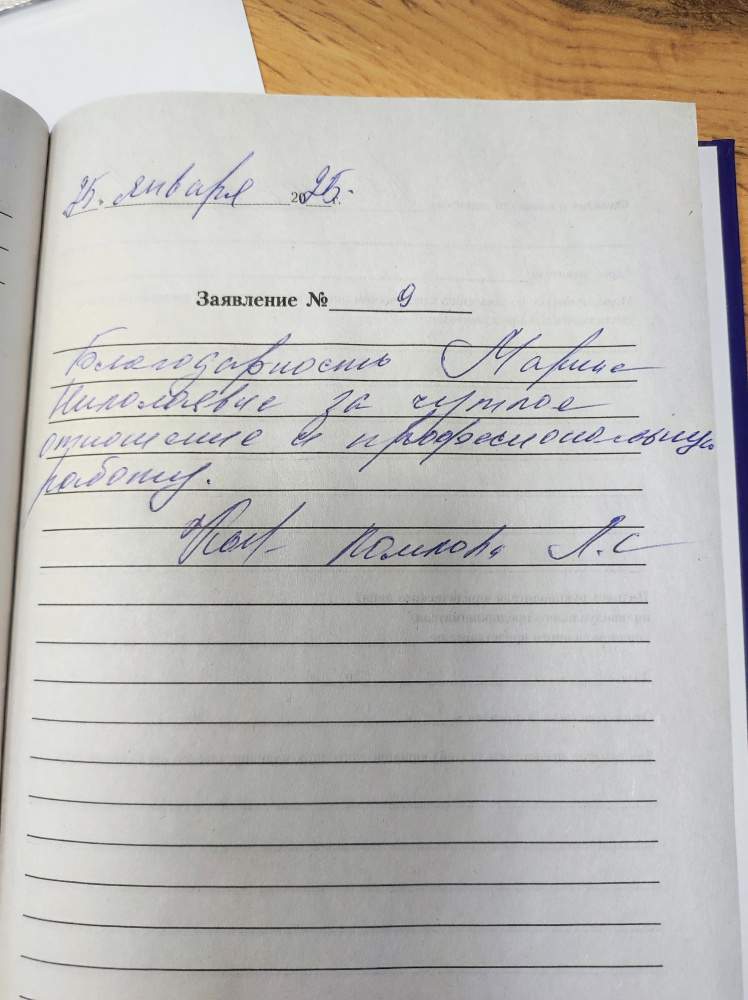 25. января 2025.
Заявление № 9
Благодарность Марине
Николаевне за чуткое
отношение и профессиональную
работу.
Л.С